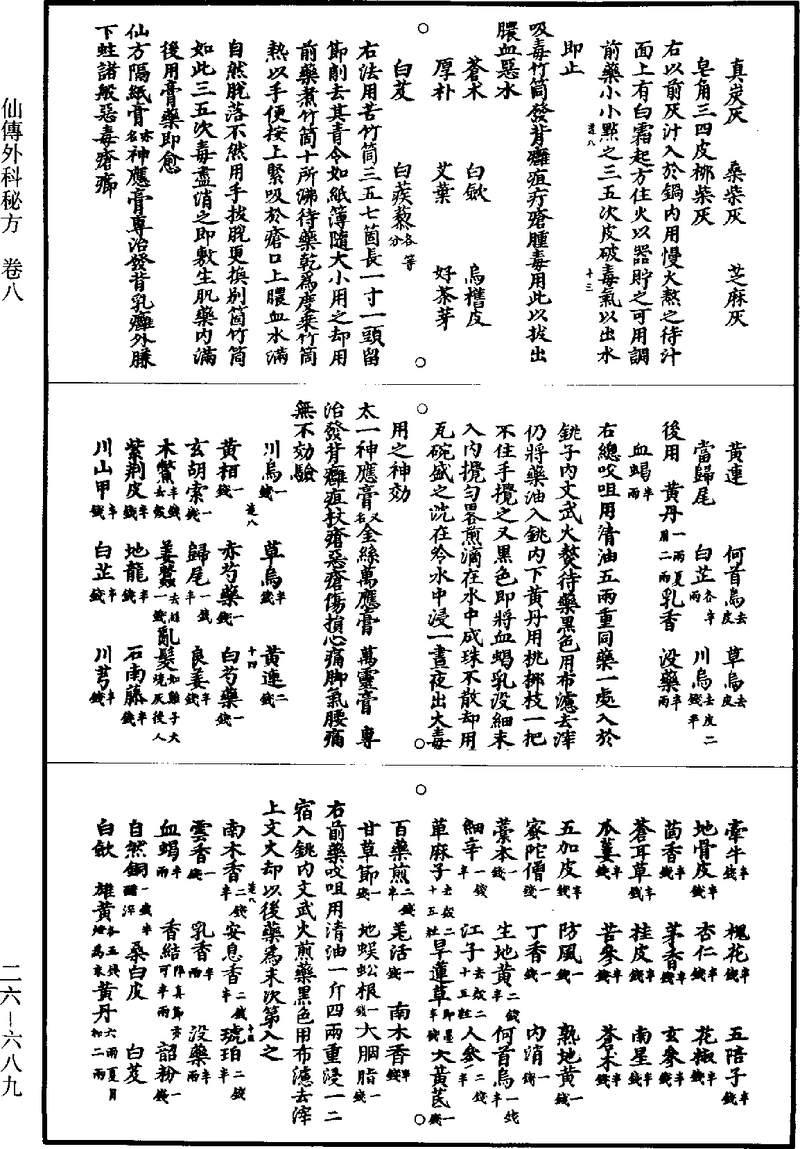 真炭灰　桑柴灰　芝麻灰
皂角三四皮梛柴灰
右以前灰汁入於鍋内用慢火熬之待汁
面上有白霜起方住火以器貯之可用調
前藥小小點之三五次皮破毒氣以出水
即止
吸毒竹筒發背癰疽疔瘡腫毒用此以拔出
膿血惡水
蒼术　白蘞　烏櫃皮
厚朴　艾葉　好茶芽
白芨　白蒺藜各等分
右法用苦竹筒三五七箇長一寸一頭留
節削去其青令如紙薄隨大小用之却用
前藥煮竹筒十所沸待藥乾為度乗竹筒
熱以手便按上緊吸於瘡口上膿血水滿
自然脱落不然用手拔脱更换别箇竹筒
如此三五次毒盡消之即敷生肌藥内滿
後用膏藥即愈
仙方隔紙膏亦名神應膏專治發背乳癰外臁
下疰諸般惡毒瘡癤
黄連　何首烏去皮　草烏去皮
當歸尾　白芷各半兩　川烏去皮二錢半
後用　黄丹一兩夏月二兩　乳香　没藥半兩
血竭半兩
右總㕮咀用清油五兩重同藥一處入於
銚子内文武火熬待藥黑色用布濾去滓
仍將藥油入銚内下黄丹用桃梛枝一把
不住手攪之又黑色即將血竭乳没細末
入内攪匀畧煎滴在水中成珠不散却用
瓦碗盛之沈在冷水中浸一晝夜出火毒
用之神効
太一神應膏又名金絲萬應膏　萬靈膏　專
治發背癰疽杖瘡惡瘡傷損心痛脚氣腰痛
無不効驗
川烏一錢　草烏半錢　黄連二錢
黄栢一錢　赤芍藥一錢　白芍藥一錢
玄胡索一錢　歸尾一錢半　良姜半錢
木鱉半錢去殻　姜蠶去絲一錢　亂髮如雞子大燒灰後入
紫荆皮半錢　地龍半錢　石南藤半錢
川山甲半錢　白芷半錢　川芎半錢
牽牛半錢　槐花半錢　五陪子半錢
地骨皮半錢　杏仁半錢　花椒半錢
茴香半錢　茅香半錢　玄參半錢
蒼耳草半錢　桂皮半錢　南星半錢
瓜蔞半錢　苦參半錢　蒼术半錢
五加皮半錢　防風一錢　熟地黄一錢
蜜陀僧一錢　丁香一錢　内消一錢
藁本一錢　生地黄二錢半　何首烏一錢半
細辛一錢半　江子去殻二十五粒　人參二錢半
萆麻子去殻二十五粒　旱蓮草即墨半錢　大黄芪一錢
百藥煎二錢半　羌活一錢　南木香半錢
甘草節一錢　地蜈蚣根一錢　大腽脂一錢
右前藥㕮咀用清油一斤四兩重浸一二
宿入銚内文武火煎藥黑色用布濾去滓
上文火却以後藥為末次第入之
南木香二錢半　安息香二錢半　琥珀二錢半
雲香一錢　乳香半兩　没藥半兩
血竭半兩　香結降真節亦可半兩　韶粉一錢
自然銅一錢半醋淬　桑白皮　白芨
白蘞　雄黄各五錢為末　黄丹六兩夏月加二兩
仙傳外科秘方　卷八
二六—六八九